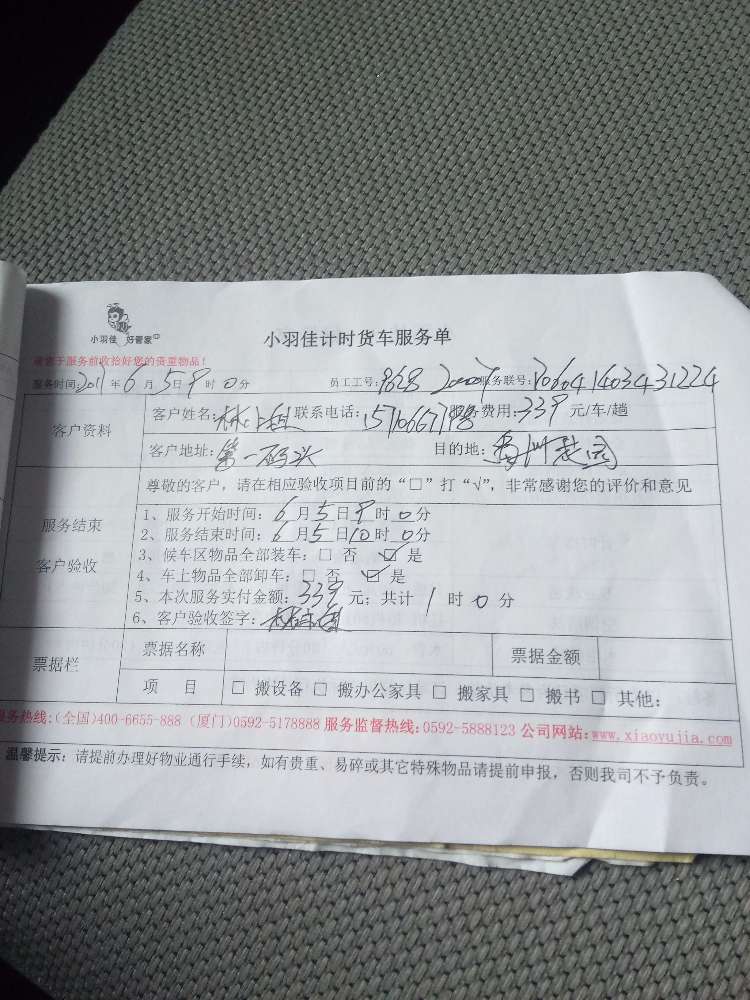 小羽佳 好管家
小羽佳计时货车服务单
请于服务前收拾好您的贵重物品!
服务时间:2011年6月5日9时0分 员工工号: 服务联号:
客户资料
客户姓名: 联系电话: 服务费用:339元/车/趟
客户地址:第一码头 目的地:
服务结束
客户验收
尊敬的客户,请在相应验收项目前的“□”打“√”,非常感谢您的评价和意见
1、服务开始时间:6月5日9时0分
2、服务结束时间:6月5日10时0分
3、候车区物品全部装车:□ 否 ☑ 是
4、车上物品全部卸车:□ 否 ☑ 是
5、本次服务实付金额:339元;共计1时0分
6、客户验收签字:
票据栏
票据名称 票据金额
项 目 □ 搬设备 □ 搬办公家具 □ 搬家具 □ 搬书 □ 其他:
服务热线:(全国)400-6655-888 (厦门)0592-5178888 服务监督热线:0592-5888123 公司网站:www.xiaoyujia.com
温馨提示:请提前办理好物业通行手续,如有贵重、易碎或其它特殊物品请提前申报,否则我司不予负责。